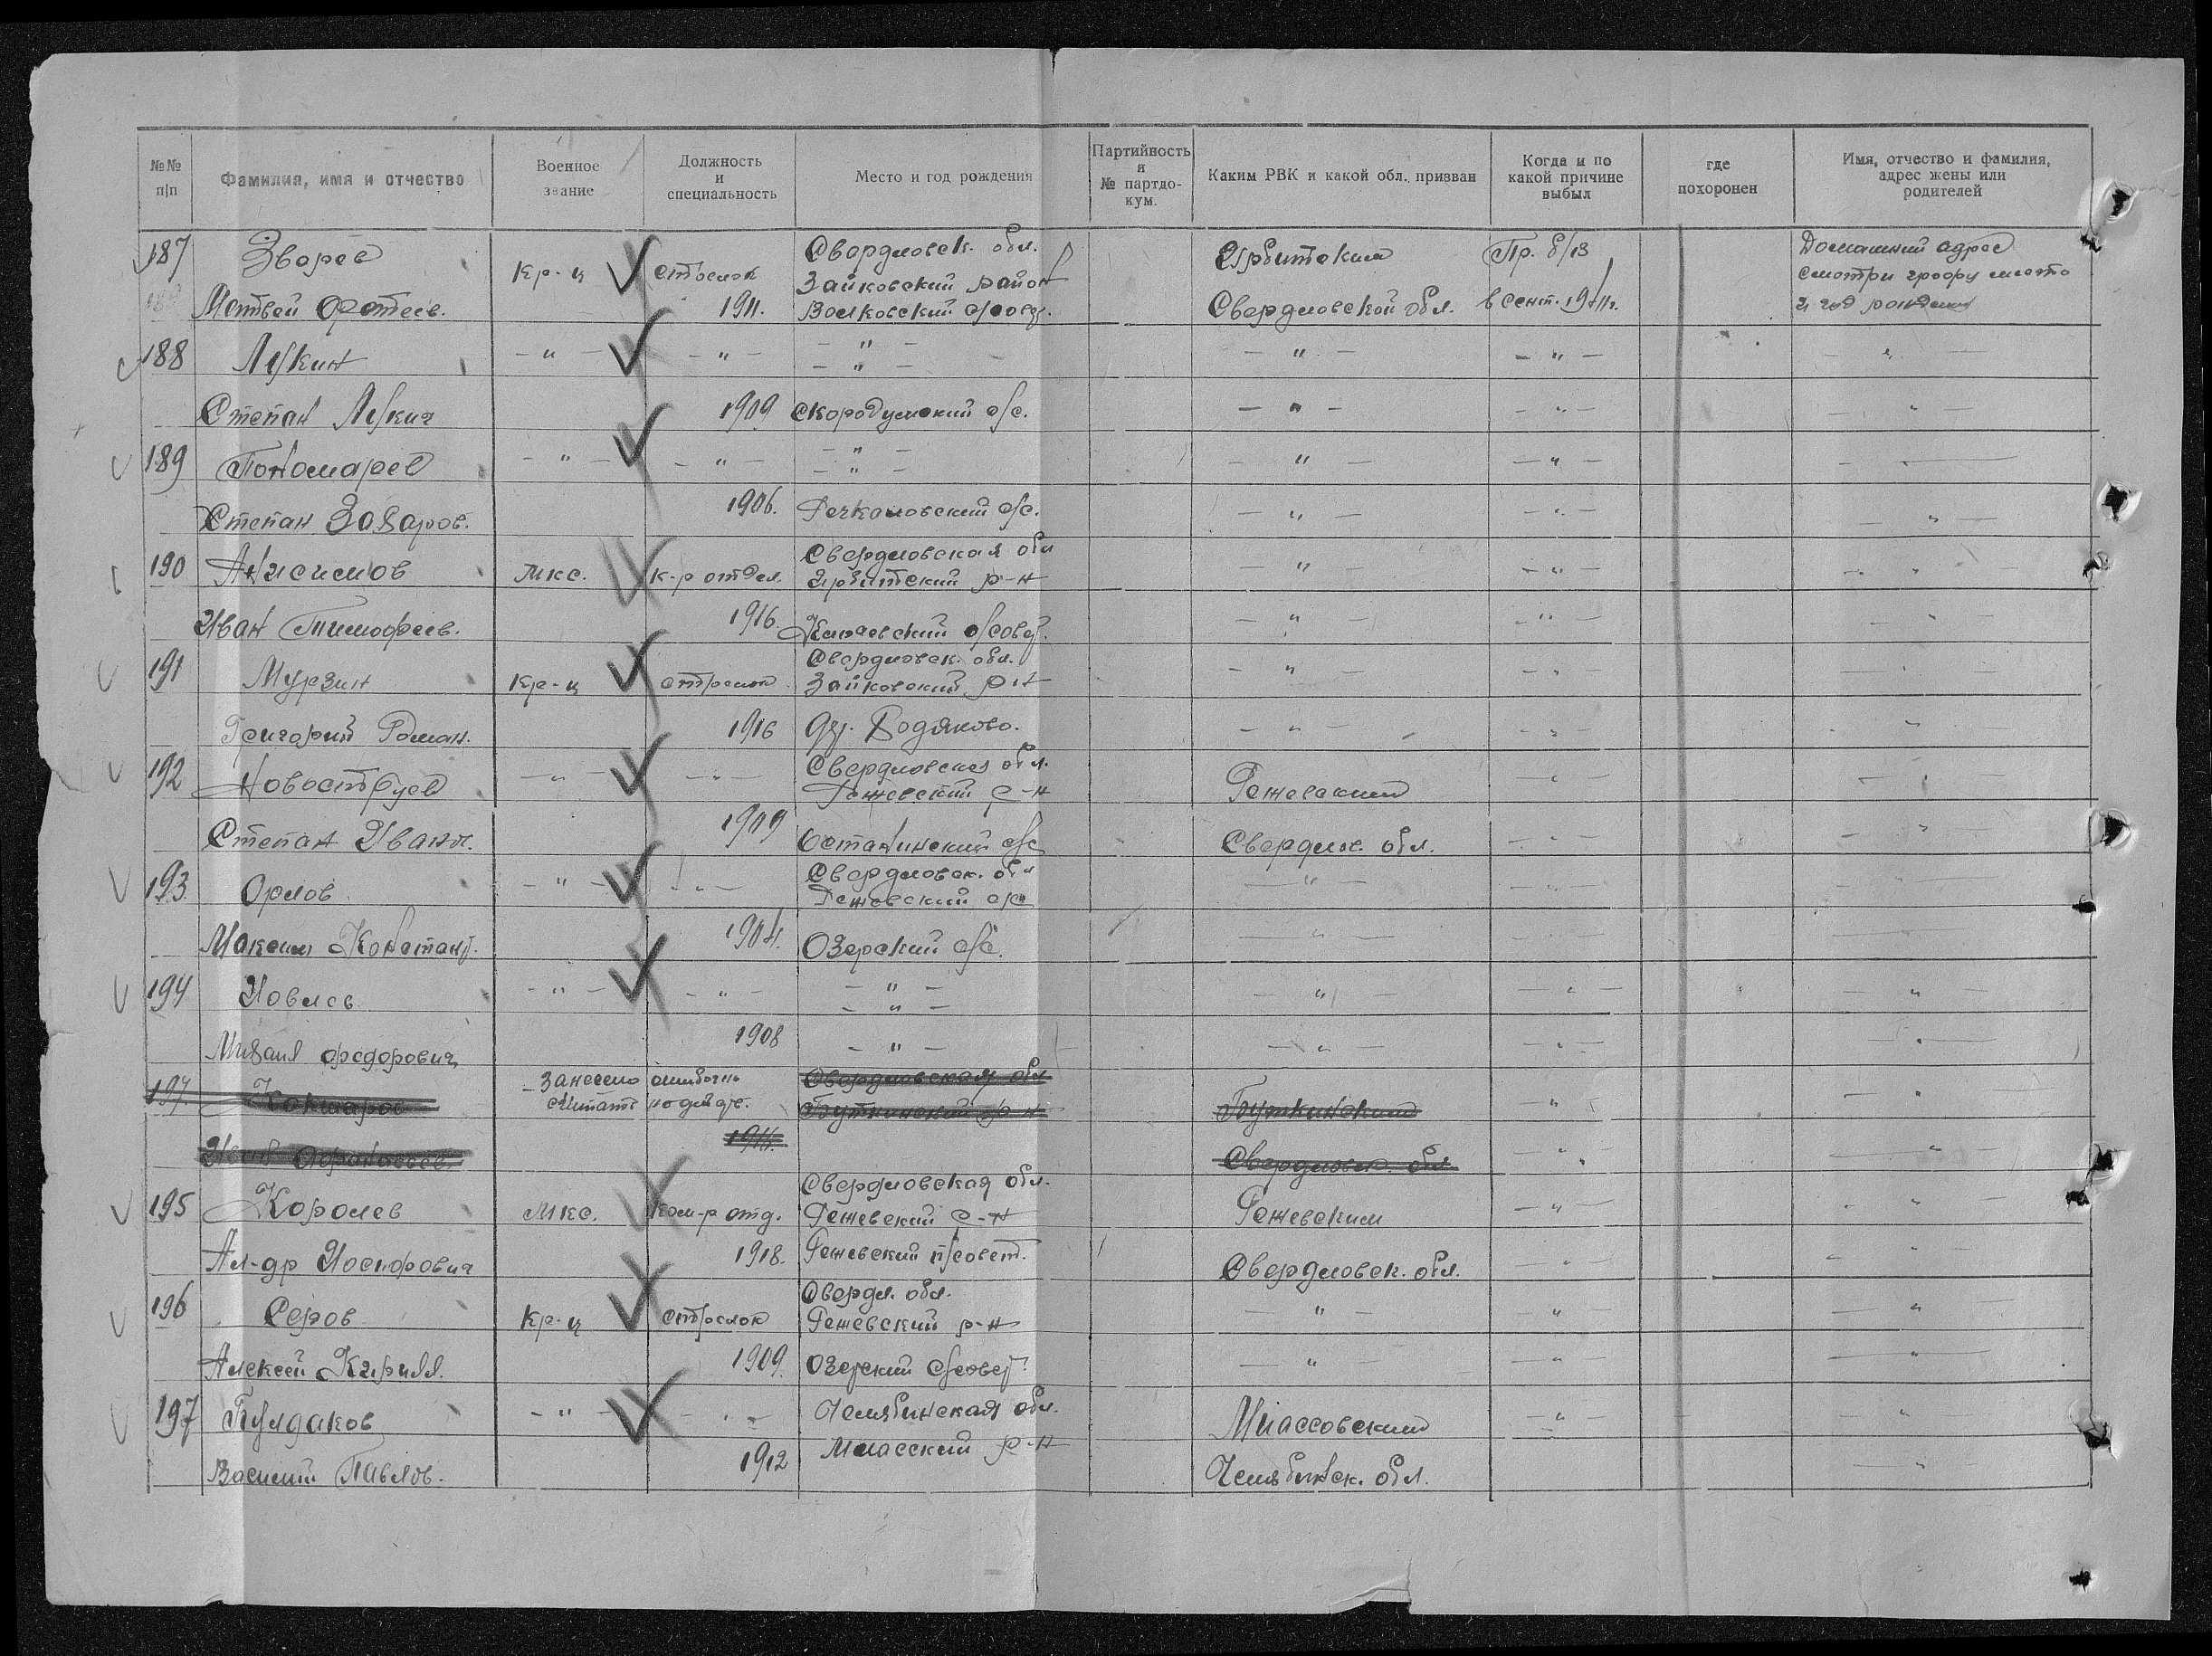 №№ п/п | Фамилия, имя и отчество | Военное звание | Должность и специальность | Место и год рождения | Партийность и № партдокум. | Каким РВК и какой обл. призван | Когда и по какой причине выбыл | где похоронен | Имя, отчество и фамилия, адрес жены или родителей
187 Зверев Кр-ц стрелок Свердловск. обл. Зайковский район Ирбитским Пр. б/в Домашний адрес смотри графу место
Матвей 1911. Волковский Свердловской обл. в сент. 1941г. и год рожден
188 Лукин — " — — " — — " — — " — — " — — " —
— " —
Степан Лукич 1909 Скородумский с/с. — " — — " — — " —
189 Пономарев — " — — " — — " — — " — — " —
— " —
Степан Захаров. 1906. Речкаловский с/с. — " — — " — — " —
190 Анисимов Мкс. к-р отдел. Свердловская обл Ирбитский р-н — " — — " — — " —
Иван Тимофеев. 1916. с/совет. — " — — " — — " —
191 Мурзин Кр-ц стрелок Свердловск. обл. Зайковский р-н — " — — " — — " —
Григорий Роман. 1916 — " — — " — — " —
192 Новоструев — " — — " — Свердловская обл. Режевский р-н Режевским — " — — " —
Степан Иван. 1909 Останинский с/с Свердлов. обл. — " — — " —
193 Орлов — " — — " — Свердловск. обл Режевский — " — — " — — " —
Максим Констант. 1904. Озерский с/с. — " — — " — — " —
194 — " — — " — — " — — " — — " — — " —
— " —
Михаил Федорович 1908 — " — — " — — " — — " —
194. Кокшаров Занесено ошибочно Свердловская обл
считать Буткинский р-н Буткинским — " — — " —
Иван Афанасьев. Свердловск. обл — " — — " —
195 Королев Мкс. Ком-р отд. Свердловская обл. Режевский р-н Режевским — " — — " —
Ал-др Иосифович 1918. Режевский п/совет. Свердловск. обл. — " — — " —
196 Серов Кр-ц стрелок Свердл. обл. Режевский р-н — " — — " — — " —
Алексей Кирилл. 1909. Озерский с/совет. — " — — " — — " —
197 Булдаков — " — — " — Челябинская обл. Миассовским — " — — " —
Василий Павлов. 1912 Миасский р-н Челябинск. обл. — " —